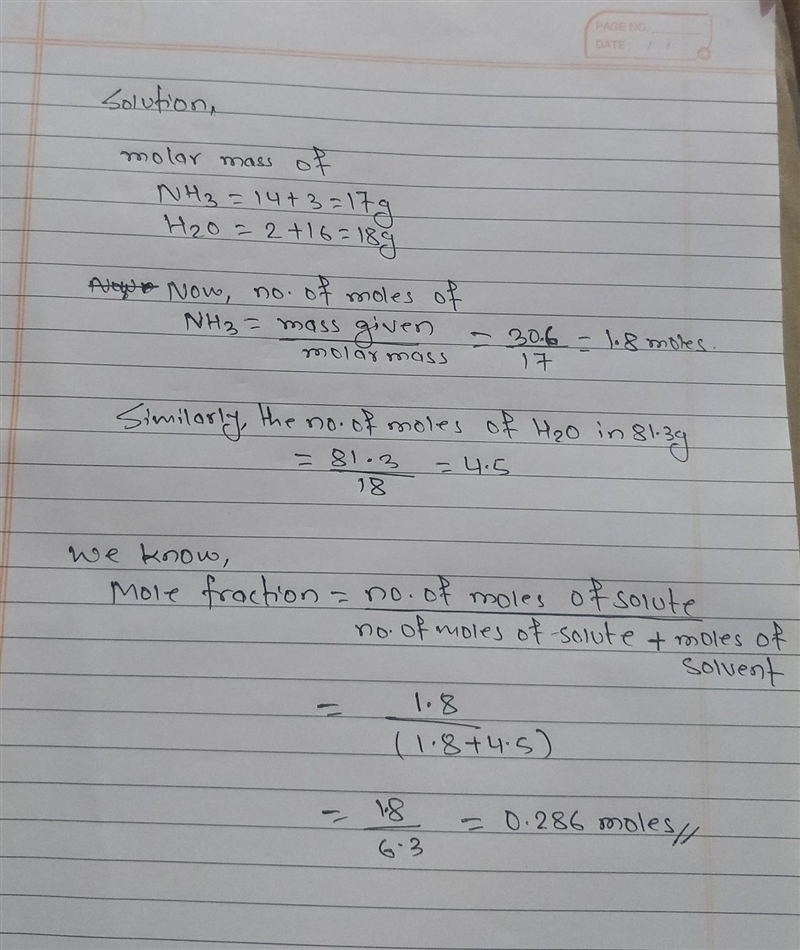 PAGE NO.
DATE: / /
Solution,
molar mass of
NH3 = 14+3=17g
H2O = 2+16=18g
Now, no. of moles of
NH3 = mass given / molar mass = 30.6 / 17 = 1.8 moles.
Similarly, the no. of moles of H2O in 81.3g
= 81.3 / 18 = 4.5
We know,
Mole fraction = no. of moles of solute / no. of moles of solute + moles of solvent
= 1.8 / (1.8+4.5)
= 1.8 / 6.3 = 0.286 moles//